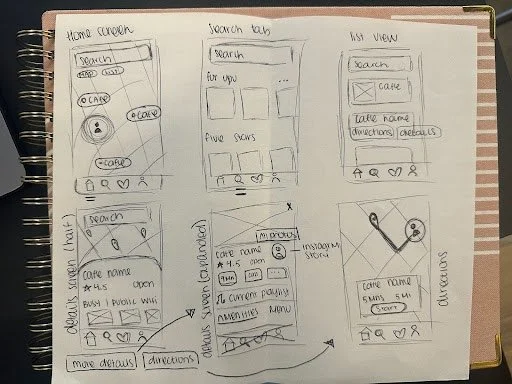 Home screen
Search
MAP LIST
CAFE
CAFE
CAFE
Search tab
Search
for you
...
five stars
list view
Search
Cafe
Cafe name
directions details
details screen (half)
Search
Cafe name
★ 4.5 open
Busy | Public Wifi
more details directions
details screen (expanded)
x
photos
cafe name
★ 4.5 open
instagram
story
current playlist
Amenities Menu
directions
Cafe name
5 mins 5 Mi
Start